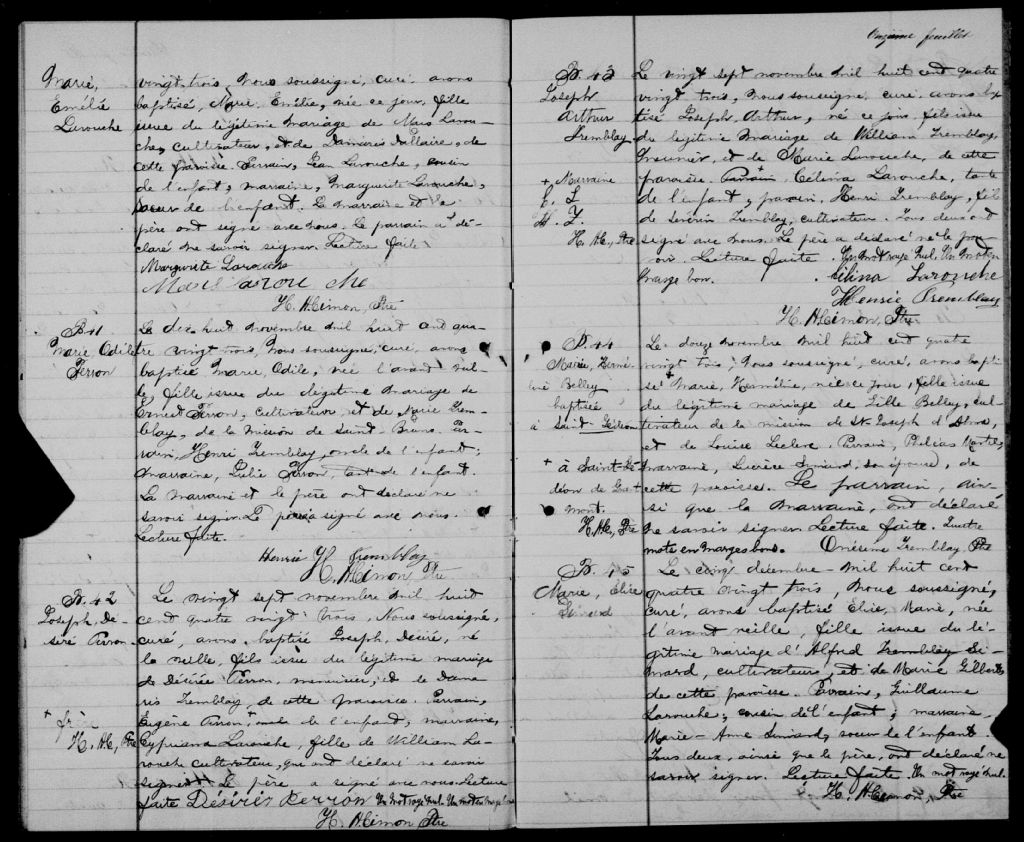 Marie,
Emélie
Larouche
vingt trois, Nous soussigné, curé, avons
baptisé, Marie, Emélie, née ce jour, fille
issue du légitime mariage de Mars Larou-
che, cultivateur, et de Damaris Dallaire, de
cette paroisse. Parrain, Jean Larouche, cousin
de l'enfant, marraine, Marguerite Larouche,
soeur de l'enfant. La marraine et le
père ont signé avec nous. Le parrain a dé-
claré ne savoir signer. Lecture faite.
Marguerite Larouche
Mars Larouche
H. Hémon, Ptre
B. 41
Marie, Odile
Perron
Le dix huit novembre mil huit cent qua-
tre vingt trois, Nous soussigné, curé, avons
baptisé Marie, Odile, née l'avant veil-
le, fille issue du légitime mariage de
Ernest Perron, cultivateur, et de Marie Trem-
blay, de la mission de Saint-Bruno. Par-
rain, Henri Tremblay, oncle de l'enfant;
marraine, Julie Perron, tante de l'enfant.
La marraine et le père ont déclaré ne
savoir signer. Le signé avec nous.
Lecture faite.
Henrie Tremblay
H. Hémon, Ptre
B. 42
Joseph, Dé-
siré Perron
Le vingt sept novembre mil huit
cent quatre vingt trois, Nous soussigné,
curé, avons baptisé Joseph, Désiré, né
la veille, fils issu du légitime mariage
de Désirée Perron, menuisier, et de Dama-
ris Tremblay de cette paroisse. Parrain,
Eugène Perron, + de l'enfant, marraine,
Cypriana Larouche, fille de William La-
rouche cultivateur, qui ont déclaré ne savoir
signer. Le père a signé avec nous. Lecture
faite Désirés Perron Un mot rayé nul. Un mot en marge bon
H. Hémon Ptre
+ frère
H. H., Ptre
Onzième feuillet
B. 43
Joseph
Arthur
Tremblay
Le vingt sept novembre mil huit cent quatre
vingt trois, Nous soussigné, curé, avons bap-
tisé Joseph, Arthur, né ce jour, fils issu
du légitime mariage de William Tremblay,
meunier, et de Marie Larouche, de cette
paroisse. Parrain + Célina Larouche, tante
de l'enfant, parrain, Henri Tremblay, fils
de Séverin Tremblay, cultivateur. Tous deux ont
signé avec nous. Le père a déclaré ne le pou-
voir. Lecture faite. Un mot rayé nul. Un mot en
marge bon.
Célina Larouche
Henrie Tremblay
H. Hémon, Ptre
+ Marraine
H. H., Ptre
B. 44
Marie, Hermé-
line Belley
baptisée
à Saint-Gédéon
Le douze novembre mil huit cent quatre
vingt trois, Nous soussigné, curé, avons bapti-
sé + Marie, née ce jour, fille issue
du légitime mariage de Gille Belley, cul-
tivateur de la mission de St Joseph d'Alma,
et de Louise Leclerc. Parrain,
marraine, Simard, son épouse, de
cette paroisse. Le parrain, ain-
si que la marraine, ont déclaré
ne savoir signer. Lecture faite. Quatre
mots en marge bons. Onésime Tremblay, Ptre
+ à Saint-Gé-
déon de Grand-
mont.
H. H., Ptre
B. 45
Marie, Elise
Simard
Le cinq décembre mil huit cent
quatre vingt trois, Nous soussigné,
curé, avons baptisé Elise, Marie, née
l'avant veille, fille issue du lé-
gitime mariage d'Alfred Tremblay Si-
mard, cultivateur, et de Marie Gilbert,
de cette paroisse. Parrain, Guillaume
Larouche, cousin de l'enfant, marraine,
Marie-Anne Simard, soeur de l'enfant.
Tous deux, ainsi que le père, ont déclaré ne
savoir signer. Lecture faite. Un mot rayé nul.
H. Hémon Ptre